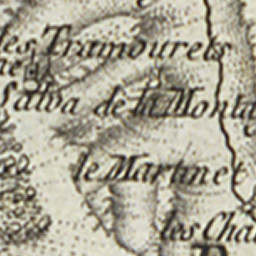 les Tramourets
Salva de la Monta
le Martinet
les Cha